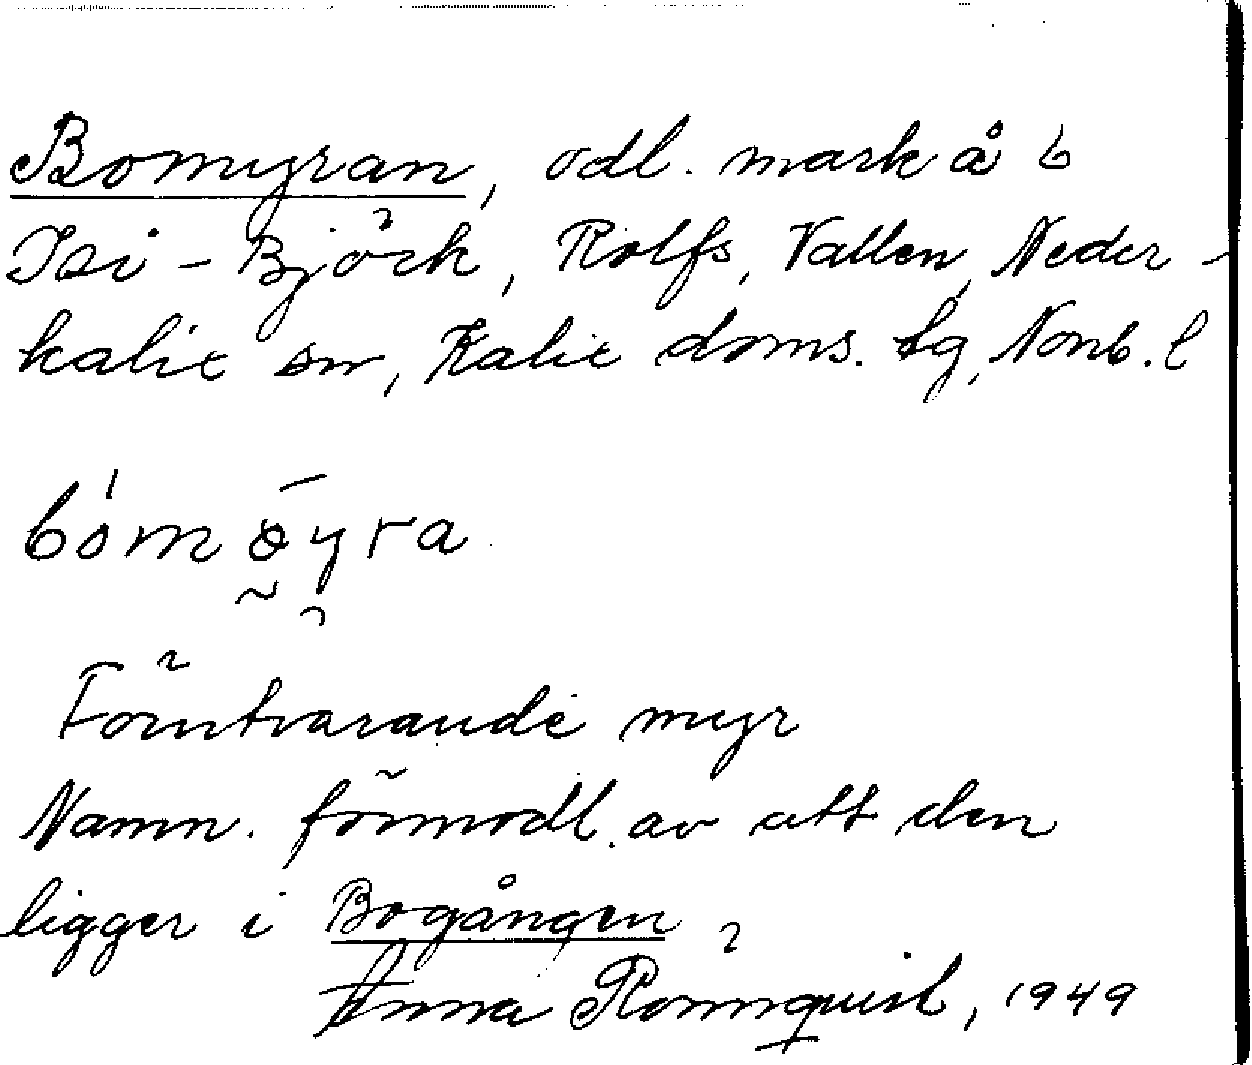 Bomyran, odl. mark å b
Isi-Björk, Rolfs, Vallen, Neder-
kalix sn, Kalix doms. lg, Norrb. l
bómöyra
Förutvarande myr
Namn. förmodl. av att den
ligger i Bogången
Anna Rönnquist, 1949